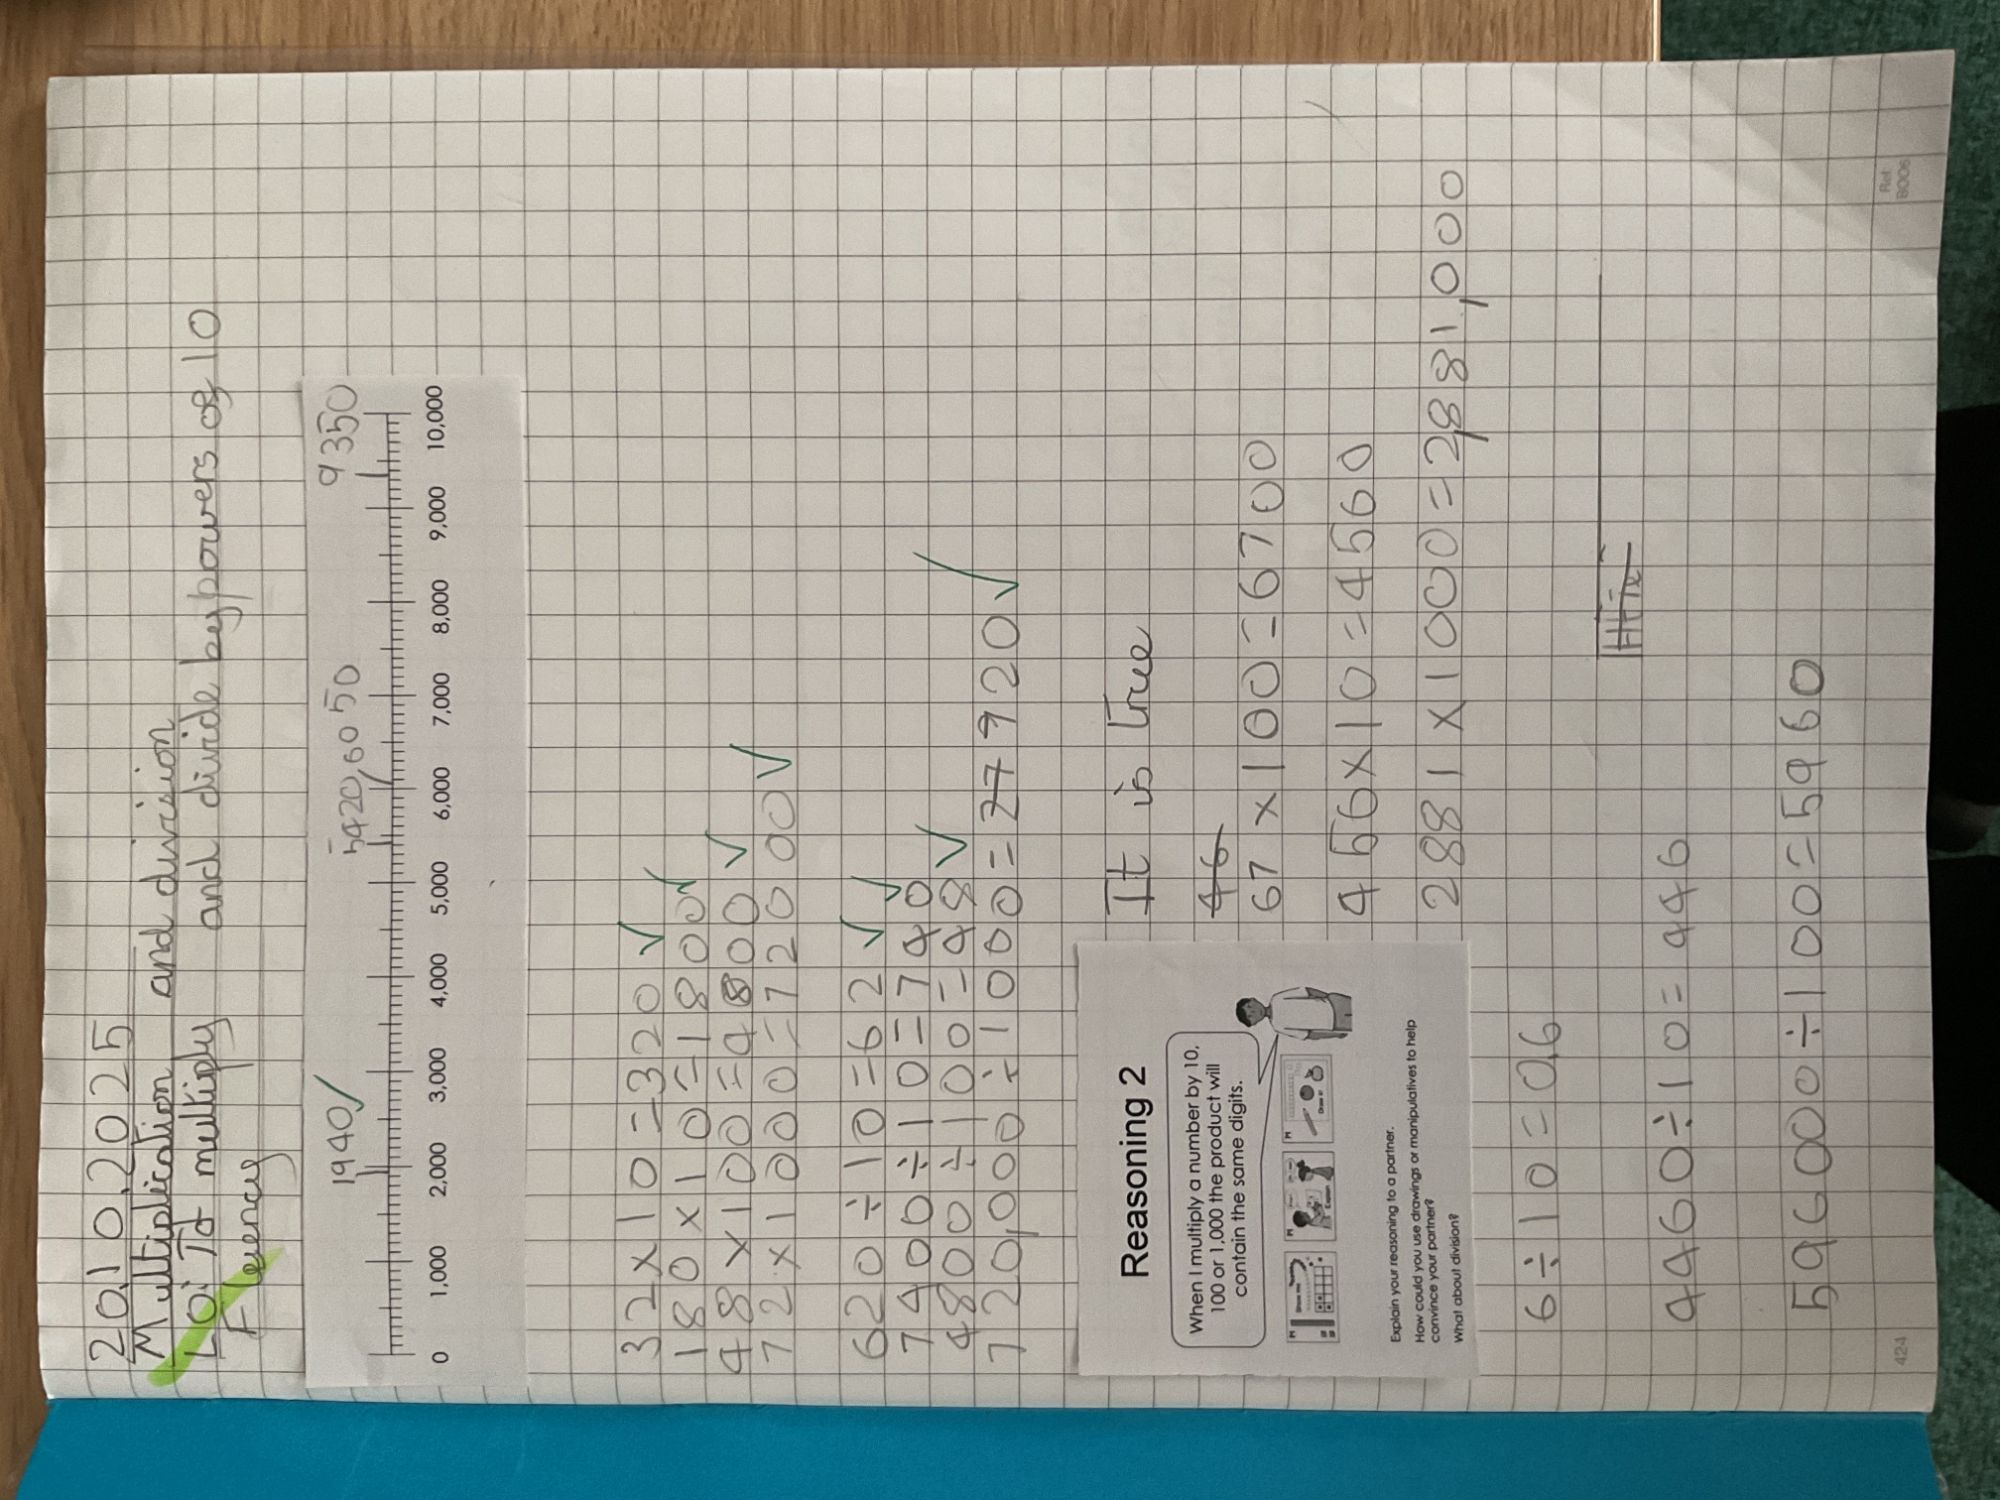 20.10.2025
Multiplication and division
LO: To multiply and divide by powers of 10
Fluency
1940 5420, 6050 9350
0 1,000 2,000 3,000 4,000 5,000 6,000 7,000 8,000 9,000 10,000
32 x 10 = 320
180 x 10 = 1800
48 x 100 = 4800
72 x 1000 = 72000
620 ÷ 10 = 62
7400 ÷ 10 = 740
4800 ÷ 100 = 48
720,000 ÷ 1000 = 27 920
Reasoning 2
When I multiply a number by 10,
100 or 1,000 the product will
contain the same digits.
Explain your reasoning to a partner.
How could you use drawings or manipulatives to help
convince your partner?
What about division?
It is True
46
67 x 100 = 6700
456 x 10 = 4560
2881 x 1000 = 2,881,000
6 ÷ 10 = 0.6
4460 ÷ 10 = 446
596000 ÷ 100 = 5960
424
Ref:
8006